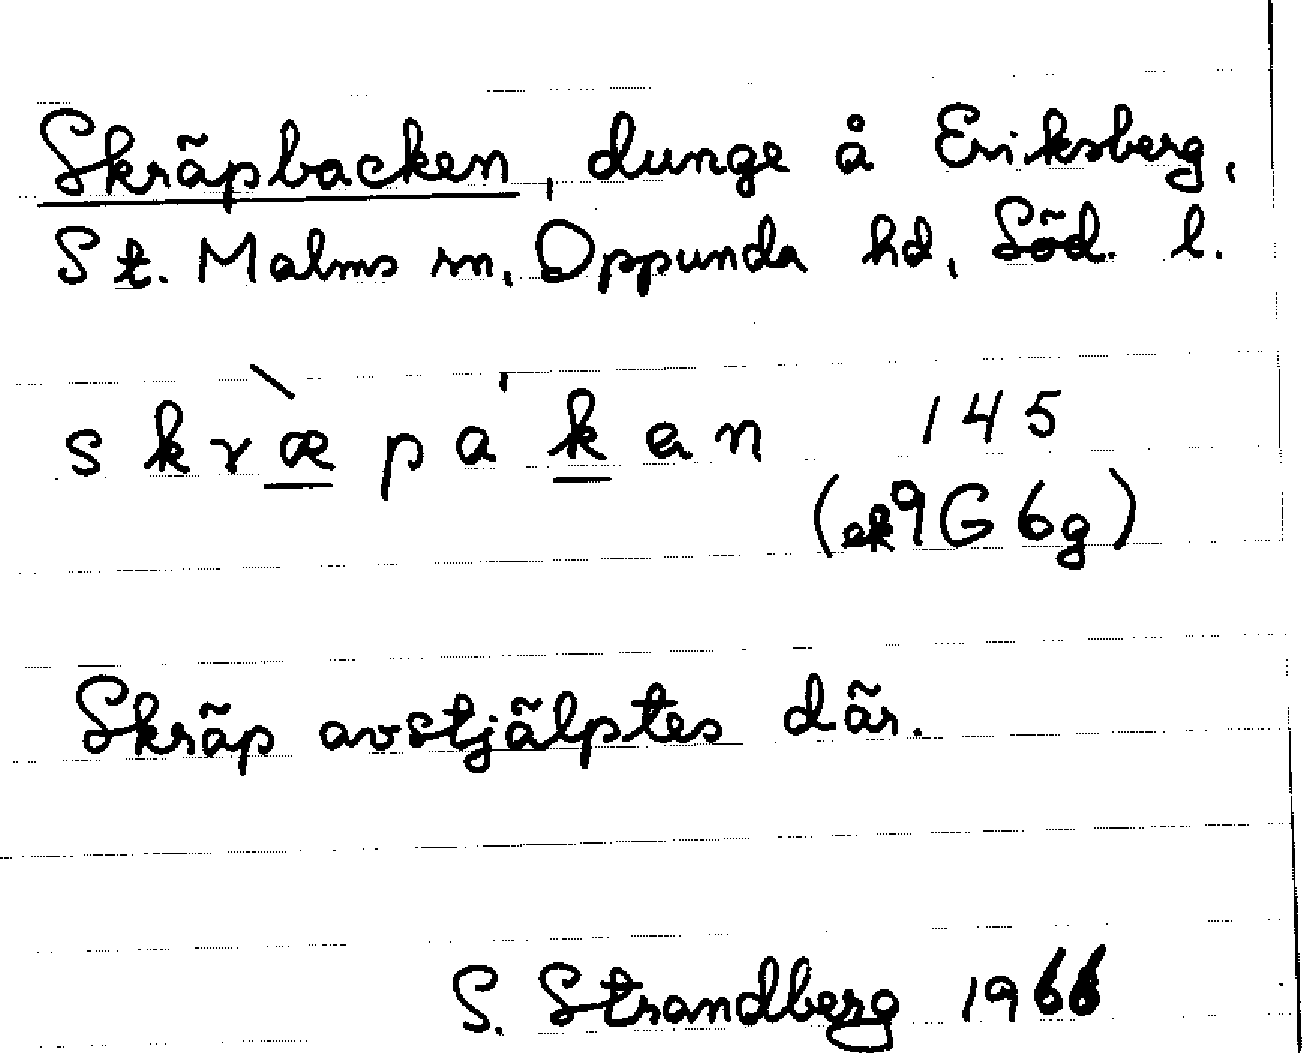 Skräpbacken, dunge å Eriksberg,
St. Malms sn, Oppunda hd, Söd. l.
skr̀æpa'ken 145
(ek 9G 6g)
Skräp avstjälptes där.
S. Strandberg 1966